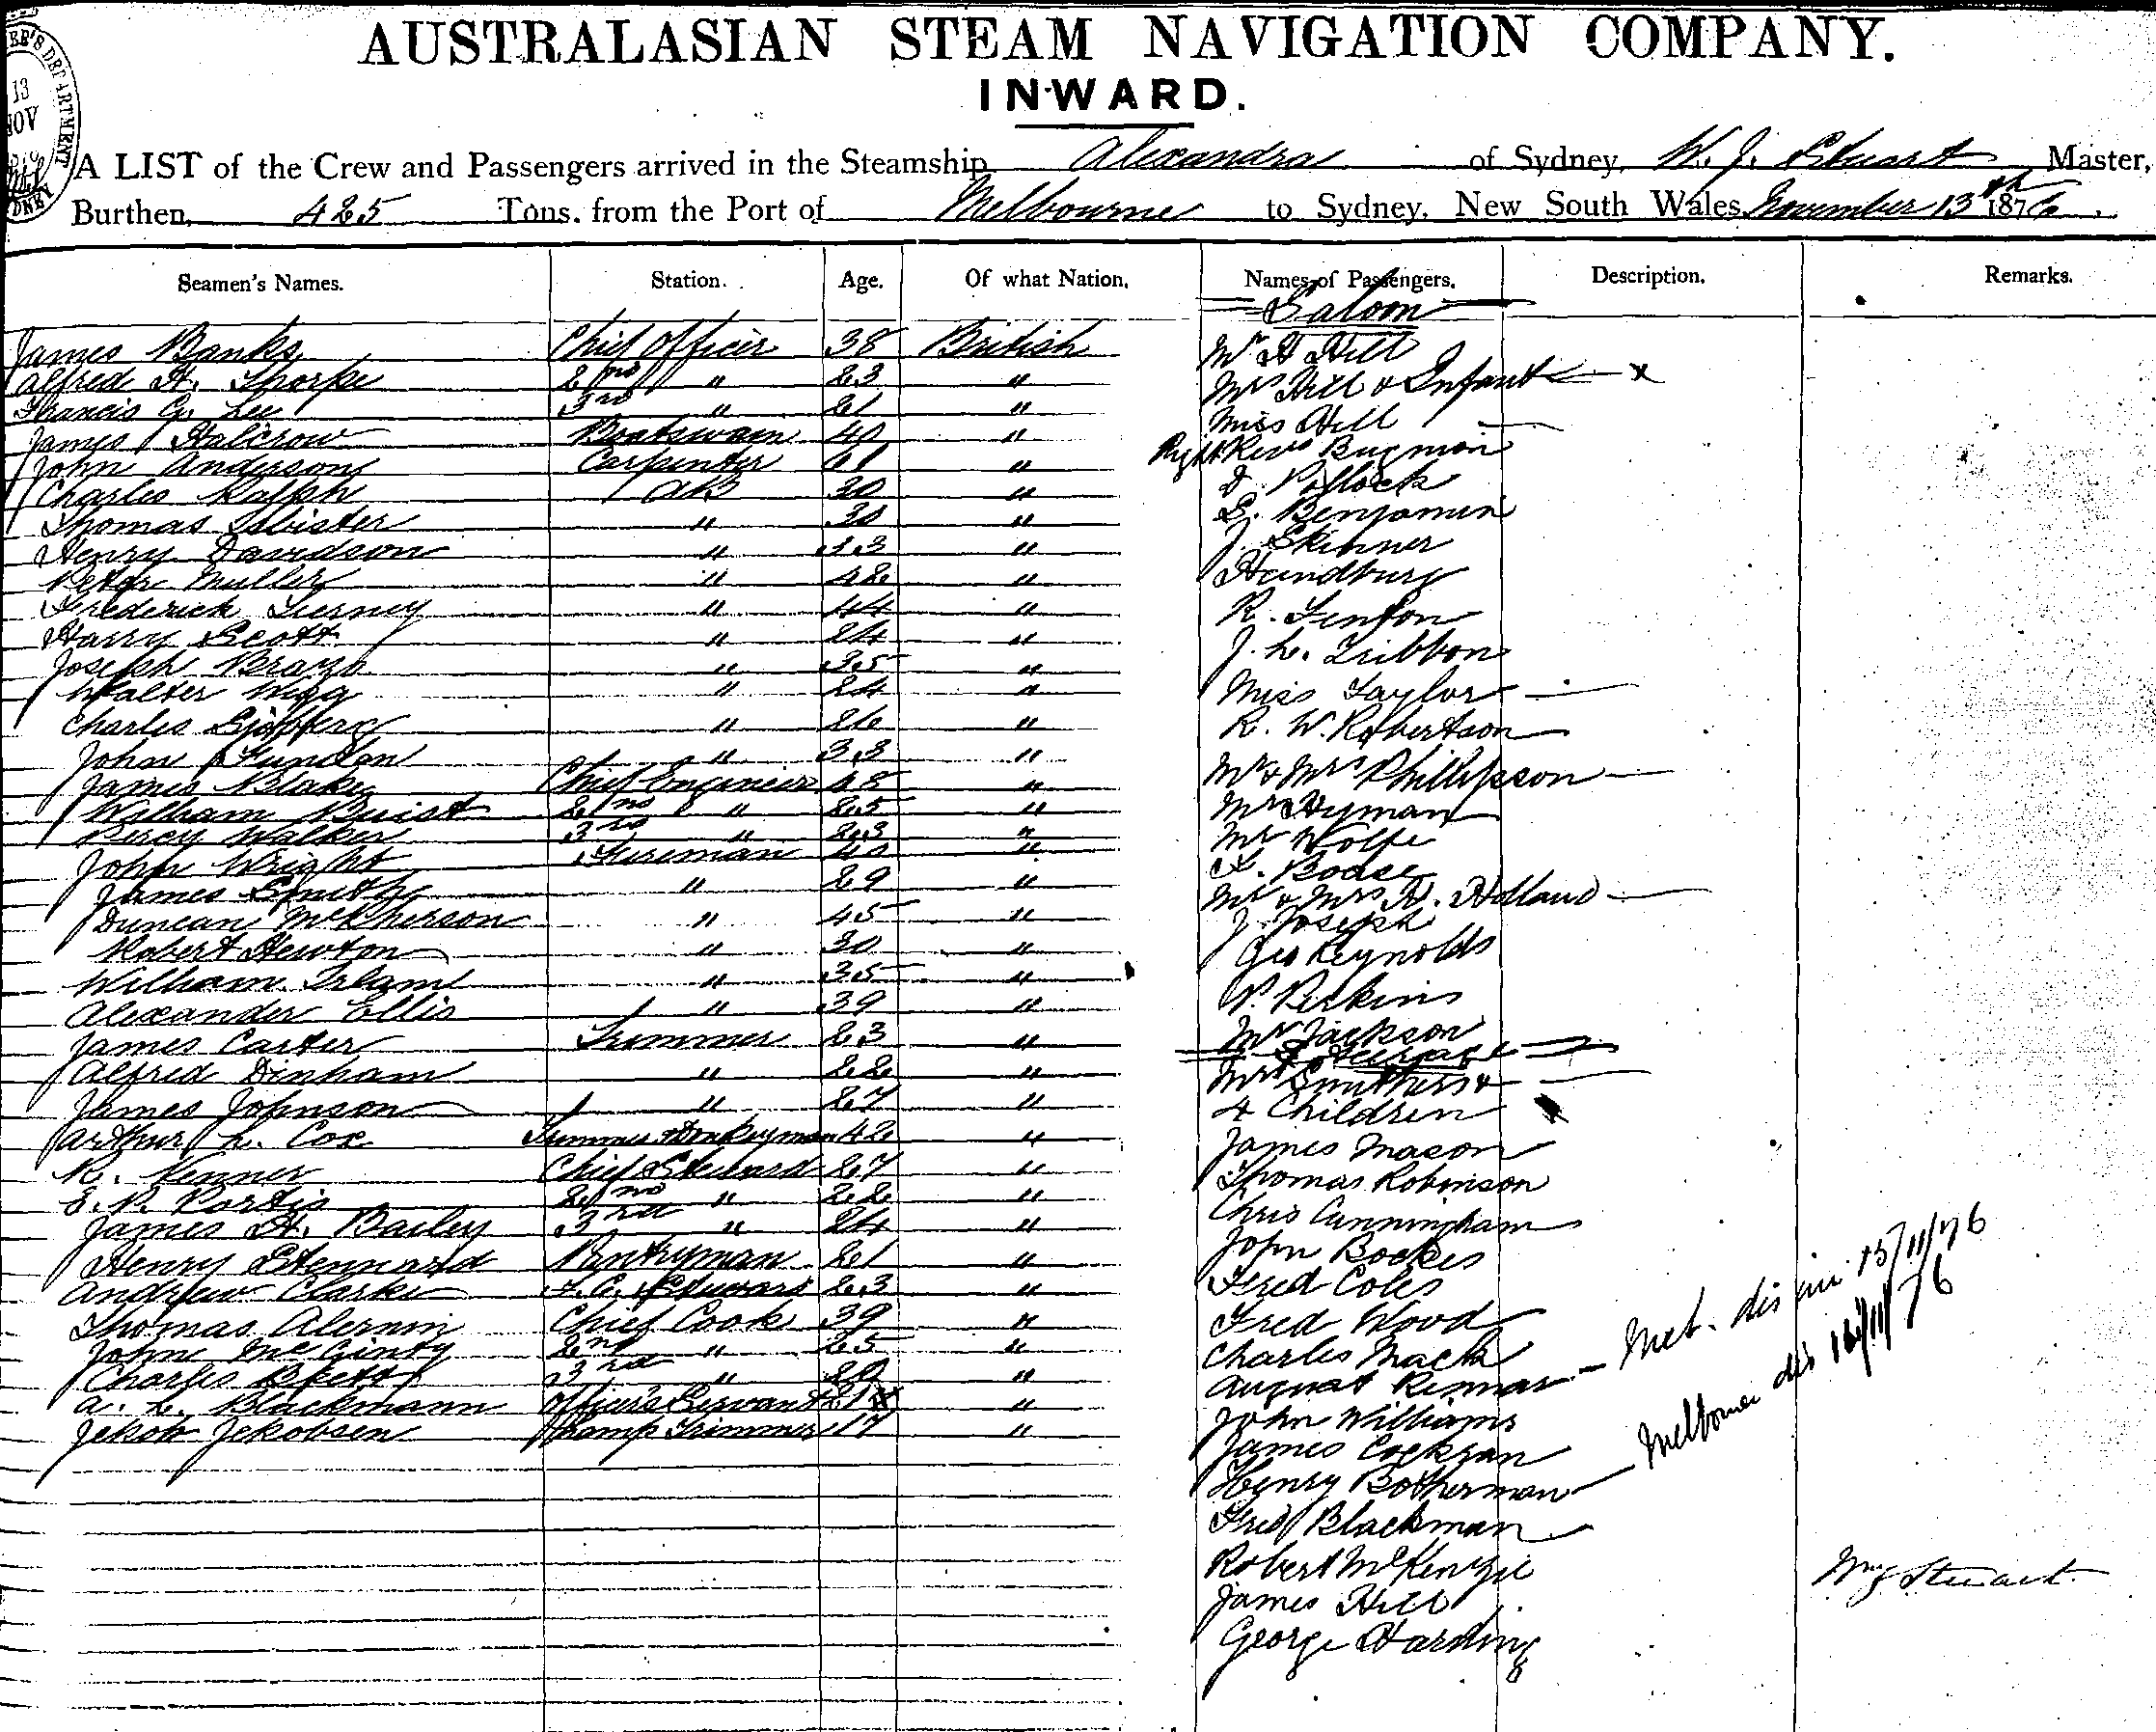 AUSTRALASIAN STEAM NAVIGATION COMPANY.
INWARD.
13
NOV
A LIST of the Crew and Passengers arrived in the Steamship Alexandra of Sydney, W. J. Stuart Master,
Burthen, 425 Tons. from the Port of Melbourne to Sydney, New South Wales, November 13th 1876.
Seamen's Names. Station. Age. Of what Nation. Names of Passengers. Description. Remarks.
Saloon
James Banks Chief Officer 38 British Mr H Hill
Alfred H. Thorpe 2nd " 23 " Mrs Hill & Infant x
Francis G. Lee 3rd " 21 " Miss Hill
James Halcrow Boatswain 40 " Right Revd Bugmion
John Anderson Carpenter 41 " D. Pollock
Charles Ralph AB 30 " S. Benjamin
Thomas Isbister " 30 " J. Skinner
Henry Davidson " 33 " Handbury
Peter Muller " 42 " R. Fenton
Frederick Tierney " 44 "
Harry Scott " 24 " J. L. Tribbon
Joseph " 35 " Miss Taylor
Walter Wigg " 24 " R. W. Robertson
Charles " 26 "
John " 33 " Mr & Mrs Phillipson
James Blake Chief Engineer 48 " Mr Hyman
William Buist 2nd " 25 " Mr Wolfe
Percy Walker 3rd " 23 "
John Wright Fireman 40 " Boase
James Smith " 29 " Mr & Mrs H. Holland
Duncan McPherson " 45 " J. Joseph
Robert Hewton " 30 " Geo Reynolds
William " 35 "
Alexander Ellis " 39 " P. Perkins
James Carter Trimmer 23 " Mr Jackson
Steerage
Alfred Dinham " 22 " Mrs Smithers &
James Johnson " 27 " 4 Children
Arthur L. Cox Trimmer & Donkeyman 42 " James Mason
R. Kenner Chief Steward 27 " Thomas Robinson
E. P. Portis 2nd " 22 " Chris Cunningham
James H. Bailey 3rd " 24 " John
Henry Stennard Pantryman 21 " Fred Coles
Andrew Clarke F.C. Steward 23 " Fred Wood
Thomas Chief Cook 39 " Charles Mack
John McGinty 2nd " 25 " August
Charles 3rd " 20 " John Williams
A. L. Blackmann Officers Servant 21 " James Cockran
Jekob Jekobsen Lamp Trimmer 17 " Henry Botherman
Fred Blackman
Robert McKenzie
James Hill
George Harding
dis 15/11/76
Melbourne dis 16/11/76
Wm J Stuart